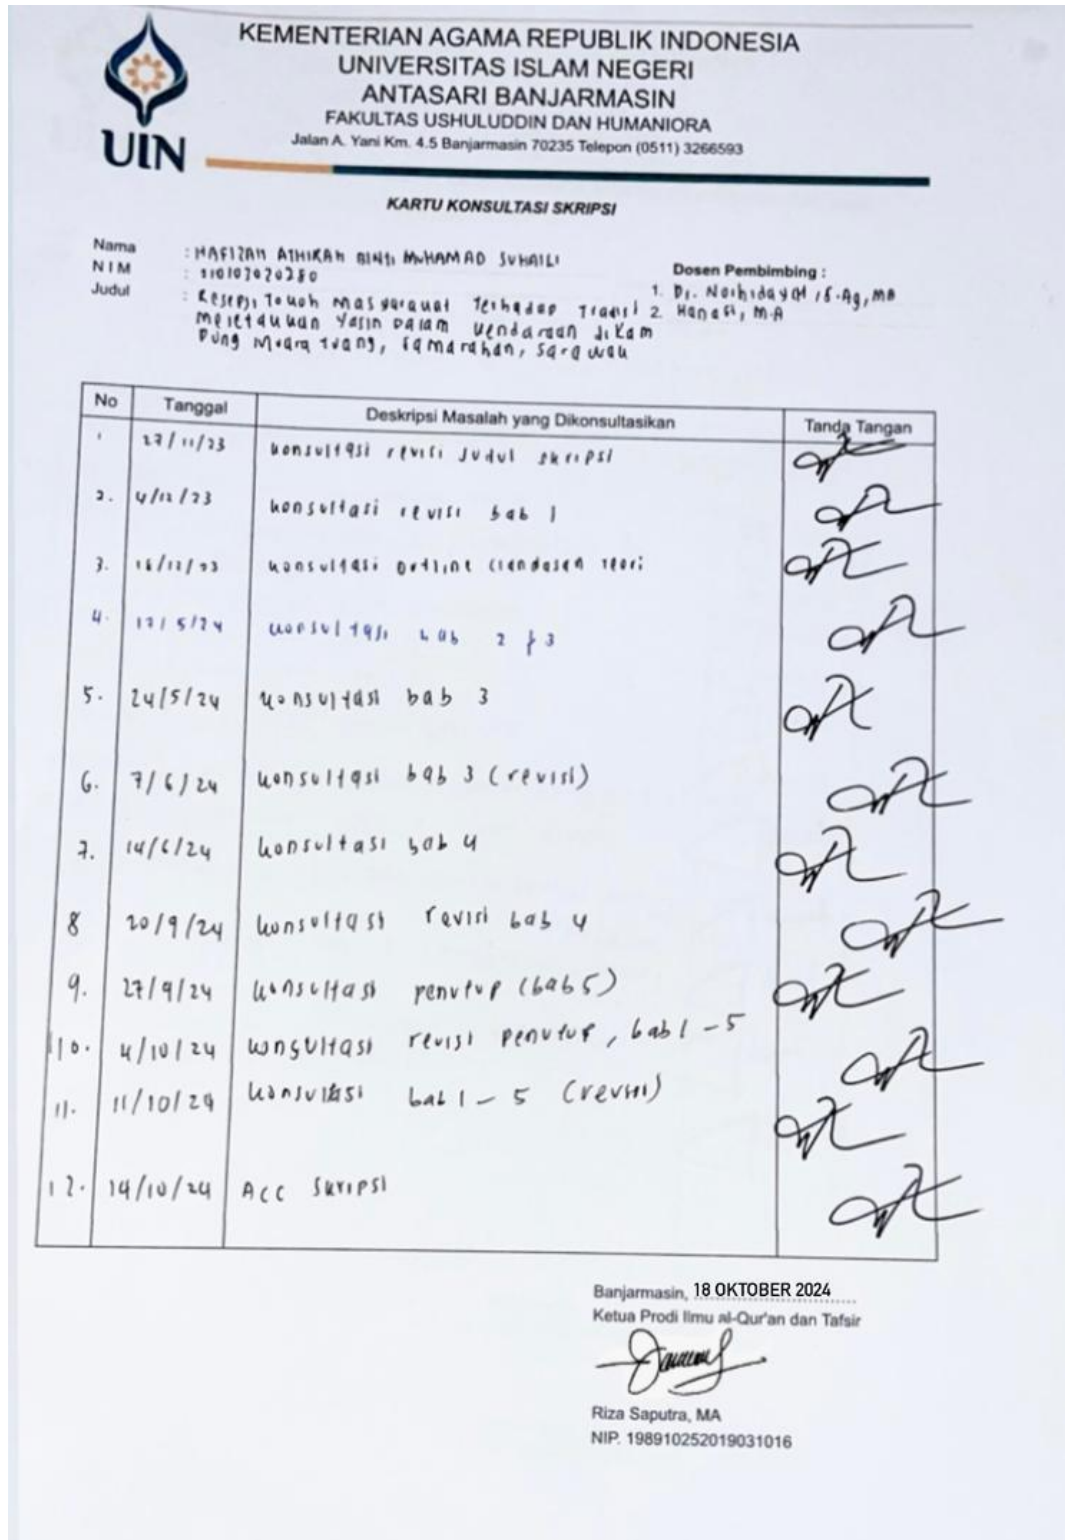 KEMENTERIAN AGAMA REPUBLIK INDONESIA
UNIVERSITAS ISLAM NEGERI
ANTASARI BANJARMASIN
FAKULTAS USHULUDDIN DAN HUMANIORA
Jalan A. Yani Km. 4.5 Banjarmasin 70235 Telepon (0511) 3266593
UIN
KARTU KONSULTASI SKRIPSI
Nama : HAFIZAH ATHIRAH BINTI MUHAMAD SUHAILI
NIM :
Judul : Resepsi Tokoh Masyarakat Terhadap Tradisi
Meletakkan Yasin Dalam Kendaraan di Kam
Pung Muara Tuang, Samarahan, Sarawak
Dosen Pembimbing :
1. Dr. Norhidayat, S.Ag, MA
2. Hanafi, M.A
No Tanggal Deskripsi Masalah yang Dikonsultasikan Tanda Tangan
1 27/11/23 konsultasi revisi judul skripsi
2. 4/12/23 konsultasi revisi bab 1
3. konsultasi outline landasan teori
4. 17/5/24 konsultasi bab 2 & 3
5. 24/5/24 konsultasi bab 3
6. 7/6/24 konsultasi bab 3 (revisi)
7. 14/6/24 konsultasi bab 4
8 20/9/24 konsultasi revisi bab 4
9. 27/9/24 konsultasi penutup (bab 5)
10. 4/10/24 konsultasi revisi penutup, bab 1 - 5
11. 11/10/24 konsultasi bab 1 - 5 (revisi)
12. 14/10/24 ACC skripsi
Banjarmasin, 18 OKTOBER 2024
Ketua Prodi Ilmu al-Qur'an dan Tafsir
Riza Saputra, MA
NIP. 198910252019031016